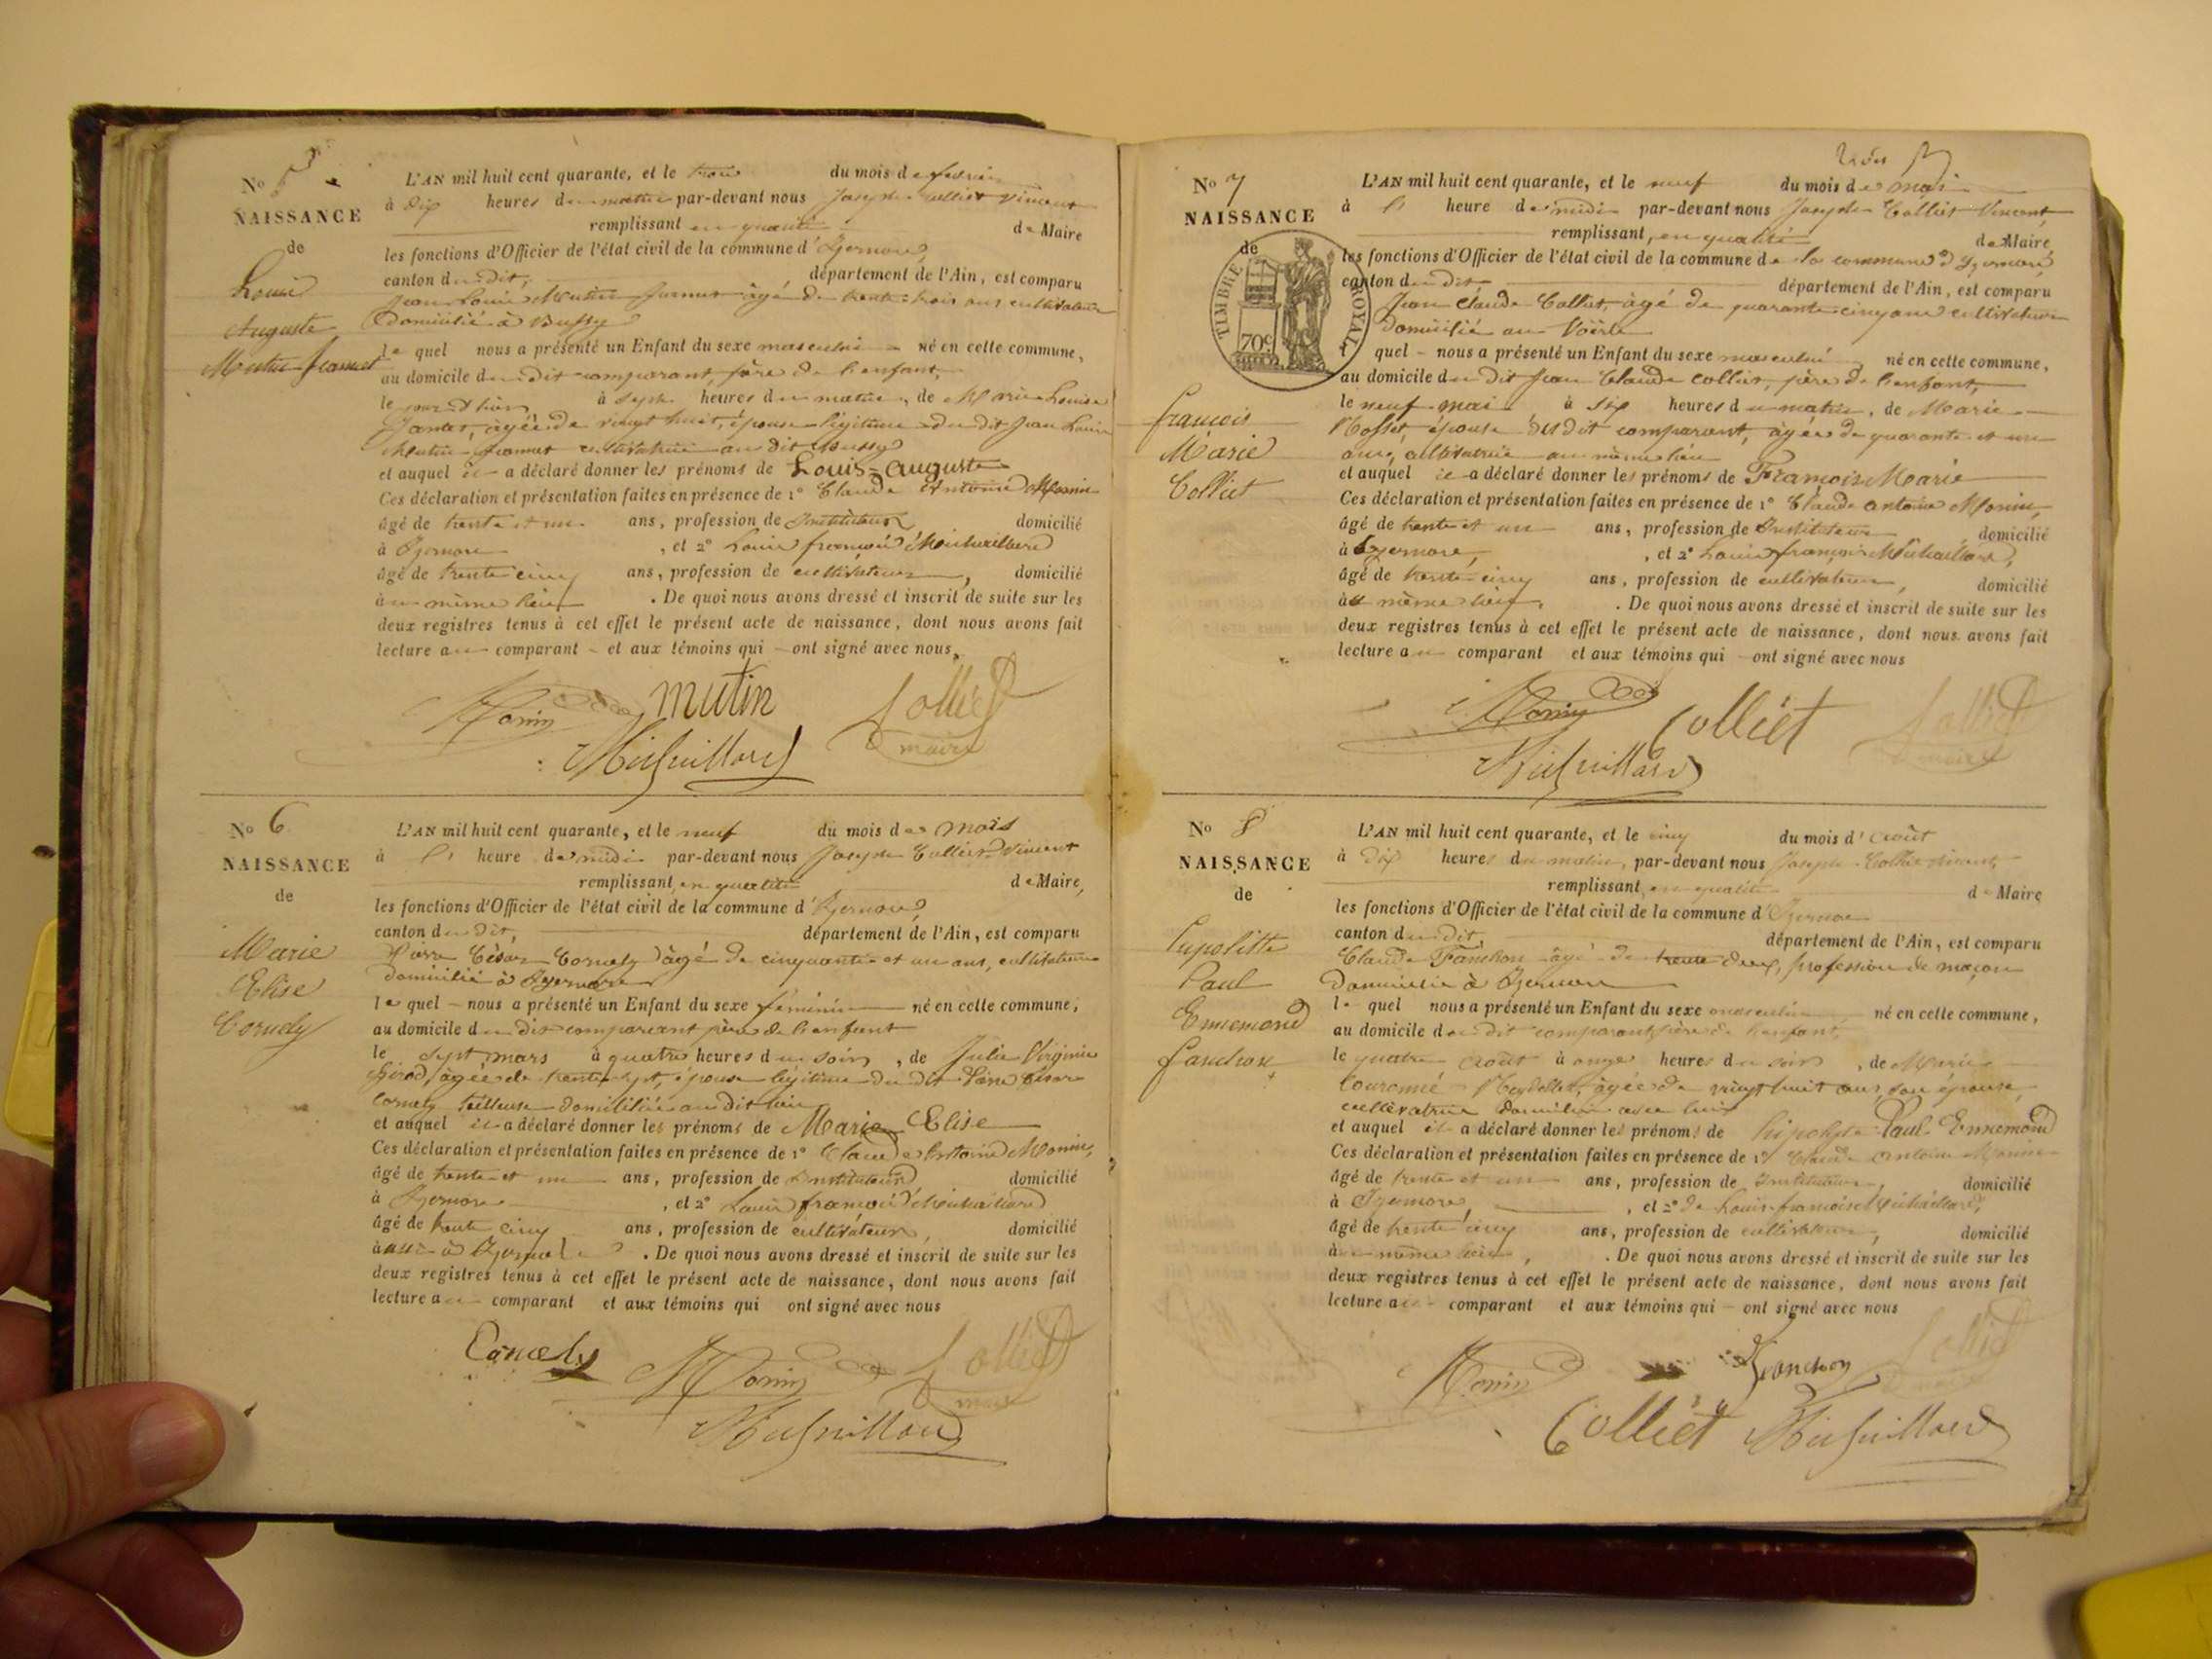 No 5
NAISSANCE
de
Louis
Auguste
L'AN mil huit cent quarante, et le trois du mois de février
à dix heures du matin par-devant nous Joseph Colliet Vincent
remplissant en qualité de Maire
les fonctions d'Officier de l'état civil de la commune d'Izernore,
canton du dit, département de l'Ain, est comparu
Jean Louis âgé de trente trois ans cultivateur
Domicilié à Bussy
le quel nous a présenté un Enfant du sexe masculin né en cette commune,
au domicile du dit comparant, père de l'enfant,
le jour d'hier, à sept heures du matin, de Marie Louise
âgée de vingt huit, épouse légitime du dit Jean Louis
cultivatrice au dit Bussy
et auquel il a déclaré donner les prénoms de Louis-Auguste
Ces déclaration et présentation faites en présence de 1° Claude Antoine Monin
âgé de trente et un ans, profession de Instituteur domicilié
à Izernore , et 2° Louis françois
âgé de trente cinq ans, profession de cultivateur, domicilié
au même lieu . De quoi nous avons dressé et inscrit de suite sur les
deux registres tenus à cet effet le présent acte de naissance, dont nous avons fait
lecture au comparant et aux témoins qui ont signé avec nous.
Monin mutin Colliet
maire
No 6
NAISSANCE
de
Marie
Elise
Cornely
L'AN mil huit cent quarante, et le neuf du mois de mars
à l' heure de midi par-devant nous Joseph Colliet Vincent
remplissant, en qualité de Maire,
les fonctions d'Officier de l'état civil de la commune d'Izernore,
canton du dit, département de l'Ain, est comparu
Pierre César Cornely âgé de cinquante et un ans, cultivateur
domicilié à Izernore
le quel nous a présenté un Enfant du sexe féminin né en cette commune,
au domicile du dit comparant père de l'enfant
le sept mars à quatre heures du soir, de Julie Virginie
Girod, âgée de trente sept, épouse légitime du dit Pierre César
Cornely tailleuse domiciliée au dit lieu
et auquel il a déclaré donner les prénoms de Marie Elise
Ces déclaration et présentation faites en présence de 1° Claude Antoine Monin,
âgé de trente et un ans, profession de Instituteur domicilié
à Izernore , et 2° Louis françois
âgé de trente cinq ans, profession de cultivateur, domicilié
aussi à Izernore . De quoi nous avons dressé et inscrit de suite sur les
deux registres tenus à cet effet le présent acte de naissance, dont nous avons fait
lecture au comparant et aux témoins qui ont signé avec nous
Cornely Monin Colliet
maire
No 7
NAISSANCE
de
TIMBRE ROYAL
70c
françois
Marie
Colliet
L'AN mil huit cent quarante, et le neuf du mois de mai
à l' heure de midi par-devant nous Joseph Colliet Vincent,
remplissant, en qualité de Maire,
les fonctions d'Officier de l'état civil de la commune de la commune d'Izernore,
canton du dit département de l'Ain, est comparu
Jean Claude Colliet, âgé de quarante cinq ans cultivateur
Domicilié au Voërle
quel nous a présenté un Enfant du sexe masculin né en cette commune,
au domicile du dit Jean Claude Colliet, père de l'enfant,
le neuf mai à six heures du matin, de Marie
épouse du dit comparant, âgée de quarante et un
ans, cultivatrice au même lieu
et auquel il a déclaré donner les prénoms de François Marie
Ces déclaration et présentation faites en présence de 1° Claude antoine Monin,
âgé de trente et un ans, profession de Instituteur domicilié
à Izernore, , et 2° Louis françois
âgé de trente cinq ans, profession de cultivateur, domicilié
au même lieu, . De quoi nous avons dressé et inscrit de suite sur les
deux registres tenus à cet effet le présent acte de naissance, dont nous avons fait
lecture au comparant et aux témoins qui ont signé avec nous
Monin Colliet Colliet
maire
No 8
NAISSANCE
de
Paul
Ennemond
fanchon
L'AN mil huit cent quarante, et le cinq du mois d'août
à dix heures du matin, par-devant nous Joseph Colliet Vincent,
remplissant, en qualité de Maire
les fonctions d'Officier de l'état civil de la commune d'Izernore
canton du dit département de l'Ain, est comparu
Claude Fanchon âgé de trente deux, profession de maçon
Domicilié à Izernore
le quel nous a présenté un Enfant du sexe masculin né en cette commune,
au domicile du dit comparant, père de l'enfant,
le quatre août à onze heures du soir, de Marie
âgée de vingt huit ans, son épouse,
cultivatrice domiciliée avec lui
et auquel il a déclaré donner les prénoms de hipolyte Paul Ennemond
Ces déclaration et présentation faites en présence de 1° Claude antoine Monin
âgé de trente et un ans, profession de Instituteur, domicilié
à Izernore, , et 2° de Louis françois
âgé de trente cinq ans, profession de cultivateur, domicilié
au même lieu, . De quoi nous avons dressé et inscrit de suite sur les
deux registres tenus à cet effet le présent acte de naissance, dont nous avons fait
lecture au comparant et aux témoins qui ont signé avec nous
Monin fanchon Colliet
Colliet